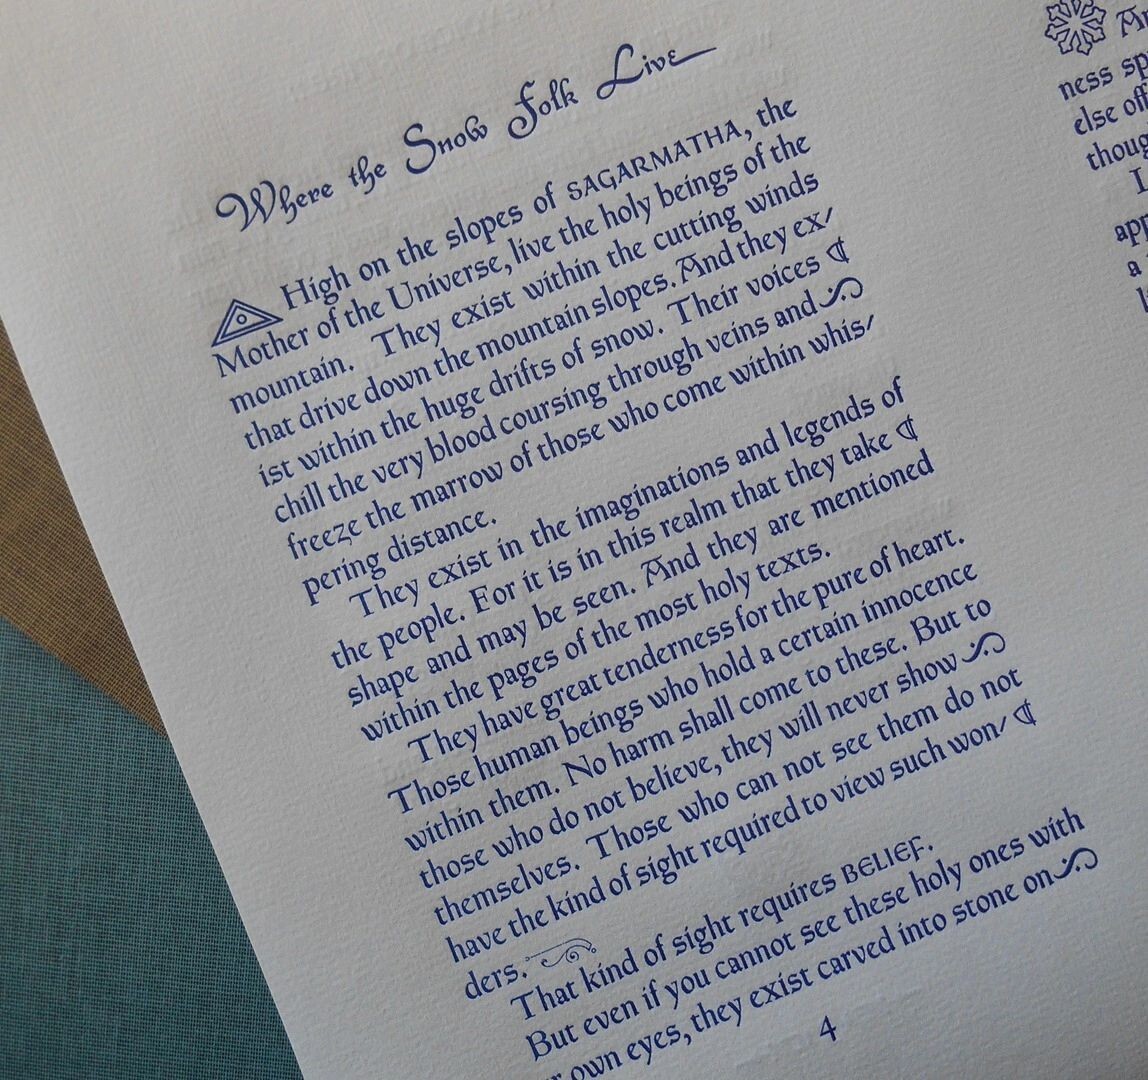 Where the Snow Folk Live
High on the slopes of SAGARMATHA, the
Mother of the Universe, live the holy beings of the
mountain. They exist within the cutting winds
that drive down the mountain slopes. And they ex/
ist within the huge drifts of snow. Their voices
chill the very blood coursing through veins and
freeze the marrow of those who come within whis/
pering distance.
They exist in the imaginations and legends of
the people. For it is in this realm that they take
shape and may be seen. And they are mentioned
within the pages of the most holy texts.
They have great tenderness for the pure of heart.
Those human beings who hold a certain innocence
within them. No harm shall come to these. But to
those who do not believe, they will never show
themselves. Those who can not see them do not
have the kind of sight required to view such won/
ders.
That kind of sight requires BELIEF.
But even if you cannot see these holy ones with
own eyes, they exist carved into stone on
4
ness
else
a